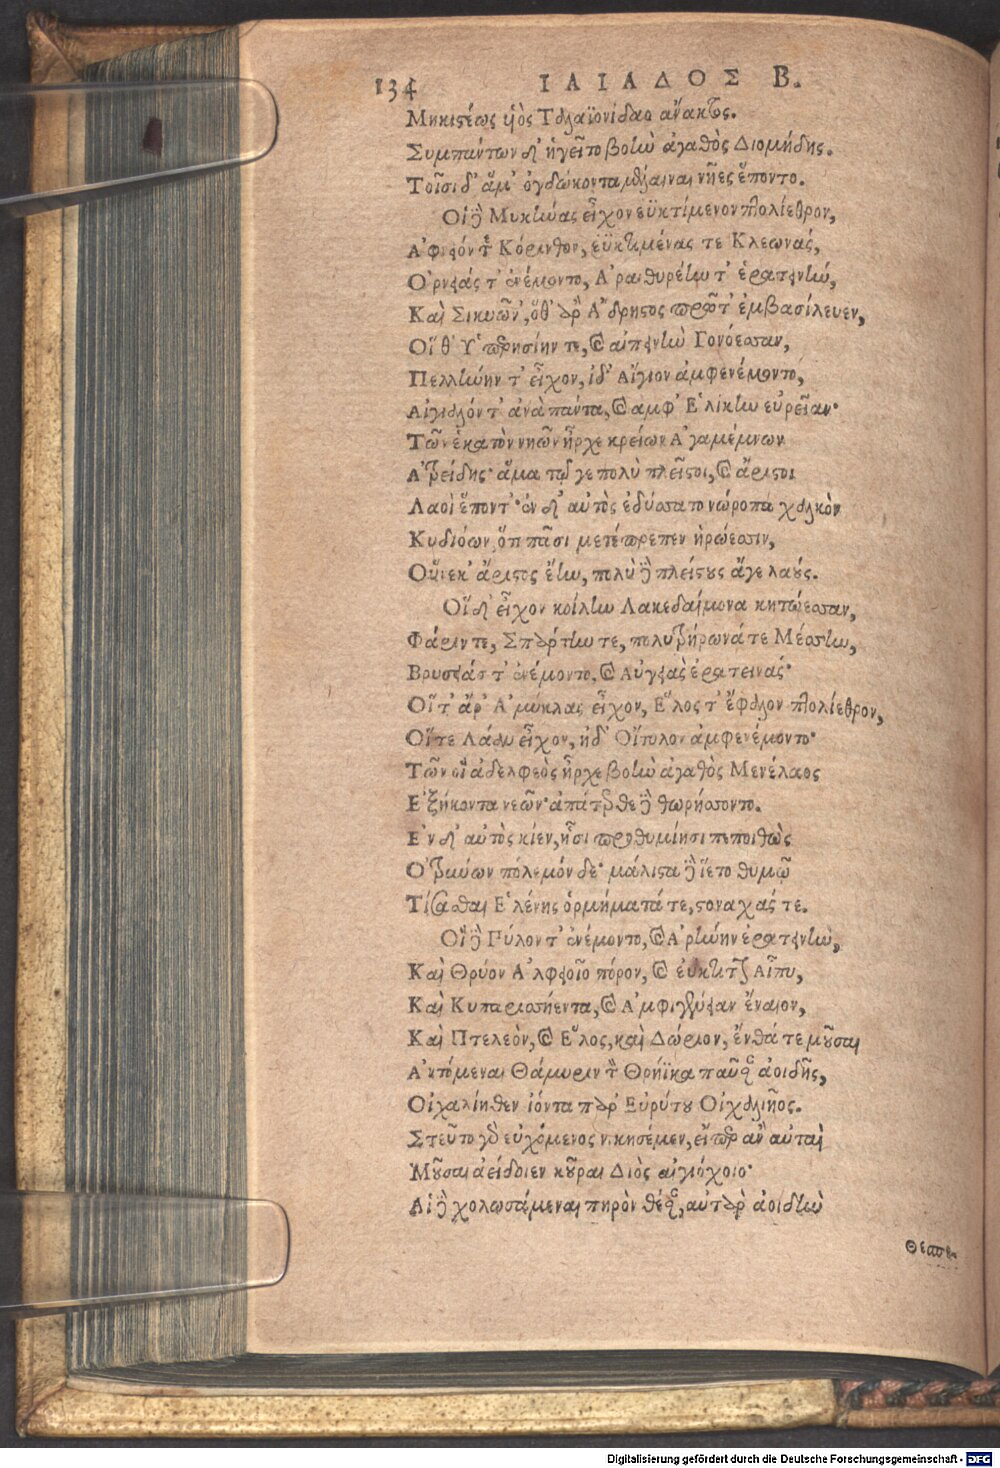 134 ΙΛΙΑΔΟΣ Β.
Μηκιστέως υἱὸς Ταλαϊονίδαο ἄνακτος.
Συμπάντων δ' ἡγεῖτο βοὴν ἀγαθὸς Διομήδης.
Τοῖσι δ' ἅμ' ὀγδώκοντα μέλαιναι νῆες ἕποντο.
Οἱ δὲ Μυκήνας εἶχον ἐϋκτίμενον πτολίεθρον,
Ἀφνειόν τε Κόρινθον, ἐϋκτιμένας τε Κλεωνάς,
Ὀρνειάς τ' ἐνέμοντο, Ἀραιθυρέην τ' ἐρατεινήν,
Καὶ Σικυῶν', ὅθ' ἄρ' Ἄδρηστος πρῶτ' ἐμβασίλευεν,
Οἵ θ' Ὑπερησίην τε, καὶ αἰπεινὴν Γονόεσσαν,
Πελλήνην τ' εἶχον, ἰδ' Αἴγιον ἀμφενέμοντο,
Αἰγιαλόν τ' ἀνὰ πάντα, καὶ ἀμφ' Ἑλίκην εὐρεῖαν·
Τῶν ἑκατὸν νηῶν ἦρχε κρείων Ἀγαμέμνων
Ἀτρείδης· ἅμα τῷ γε πολὺ πλεῖστοι, καὶ ἄριστοι
Λαοὶ ἕποντ'· ἐν δ' αὐτὸς ἐδύσσατο νώροπα χαλκὸν
Κυδιόων, ὅτι πᾶσι μετέπρεπεν ἡρώεσσιν,
Οὕνεκ' ἄριστος ἔην, πολὺ δὲ πλείστους ἄγε λαούς.
Οἵ δ' εἶχον κοίλην Λακεδαίμονα κητώεσσαν,
Φάριν τε, Σπάρτην τε, πολυτρήρωνά τε Μέσσην,
Βρυσειάς τ' ἐνέμοντο, καὶ Αὐγειὰς ἐρατεινάς·
Οἵ τ' ἄρ' Ἀμύκλας εἶχον, Ἕλος τ' ἔφαλον πτολίεθρον,
Οἵ τε Λάαν εἶχον, ἠδ' Οἴτυλον ἀμφενέμοντο·
Τῶν οἱ ἀδελφεὸς ἦρχε βοὴν ἀγαθὸς Μενέλαος
Ἑξήκοντα νεῶν· ἀπάτερθε δὲ θωρήσσοντο.
Ἐν δ' αὐτὸς κίεν, ᾗσι προθυμίῃσι πεποιθὼς
Ὀτρύνων πόλεμόν δε· μάλιστα δὲ ἵετο θυμῷ
Τίσασθαι Ἑλένης ὁρμήματά τε, στοναχάς τε.
Οἱ δὲ Πύλον τ' ἐνέμοντο, καὶ Ἀρήνην ἐρατεινήν,
Καὶ Θρύον Ἀλφειοῖο πόρον, καὶ ἐύκτιτον Αἶπυ,
Καὶ Κυπαρισσήεντα, καὶ Ἀμφιγένειαν ἔναιον,
Καὶ Πτελεὸν, καὶ Ἕλος, καὶ Δώριον, ἔνθά τε μοῦσαι
Ἀντόμεναι Θάμυριν τὸν Θρήϊκα παῦσαν ἀοιδῆς,
Οἰχαλίηθεν ἰόντα παρ' Εὐρύτου Οἰχαλιῆος.
Στεῦτο γὰρ εὐχόμενος νικησέμεν, εἴπερ ἂν αὐταὶ
Μοῦσαι ἀείδοιεν κοῦραι Διὸς αἰγιόχοιο·
Αἱ δὲ χολωσάμεναι πηρὸν θέσαν, αὐτὰρ ἀοιδὴν
Θεσπε-
Digitalisierung gefördert durch die Deutsche Forschungsgemeinschaft - DFG